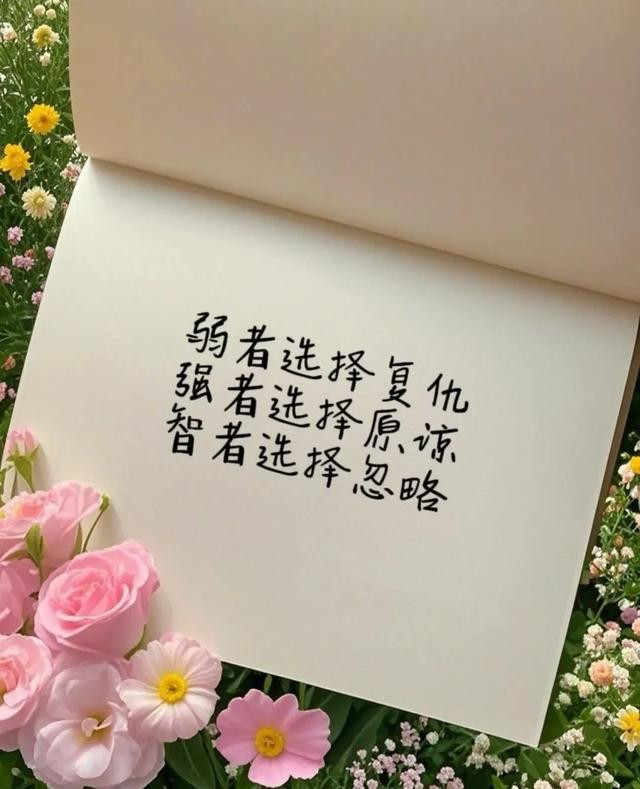 弱者选择复仇
强者选择原谅
智者选择忽略